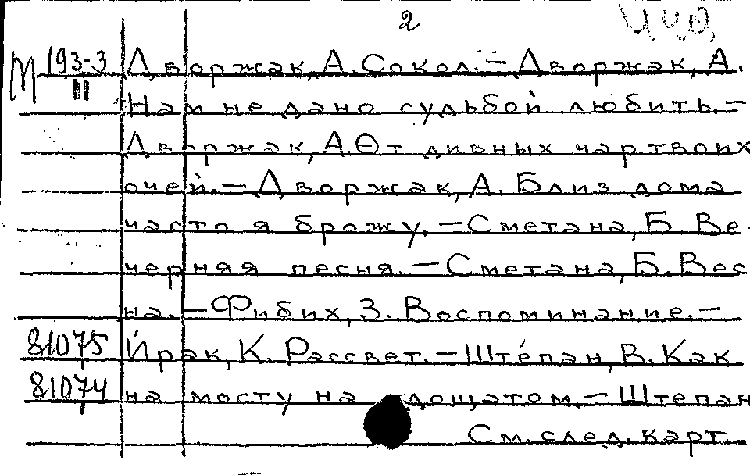 2
М 193-3 Дворжак, А. Сокол. - Дворжак, А.
III Нам не дано судьбой любить. -
Дворжак, А От дивных чар твоих
очей. - Дворжак, А. Близ дома
часто я брожу. - Сметана, Б. Ве-
черняя песня. - Сметана, Б. Вес
на. - Фибих, З. Воспоминание. -
81075 Йрак, К. Рассвет. - Штепан, В. Как
81074 на мосту на дощатом. - Штепан
См. след. карт.